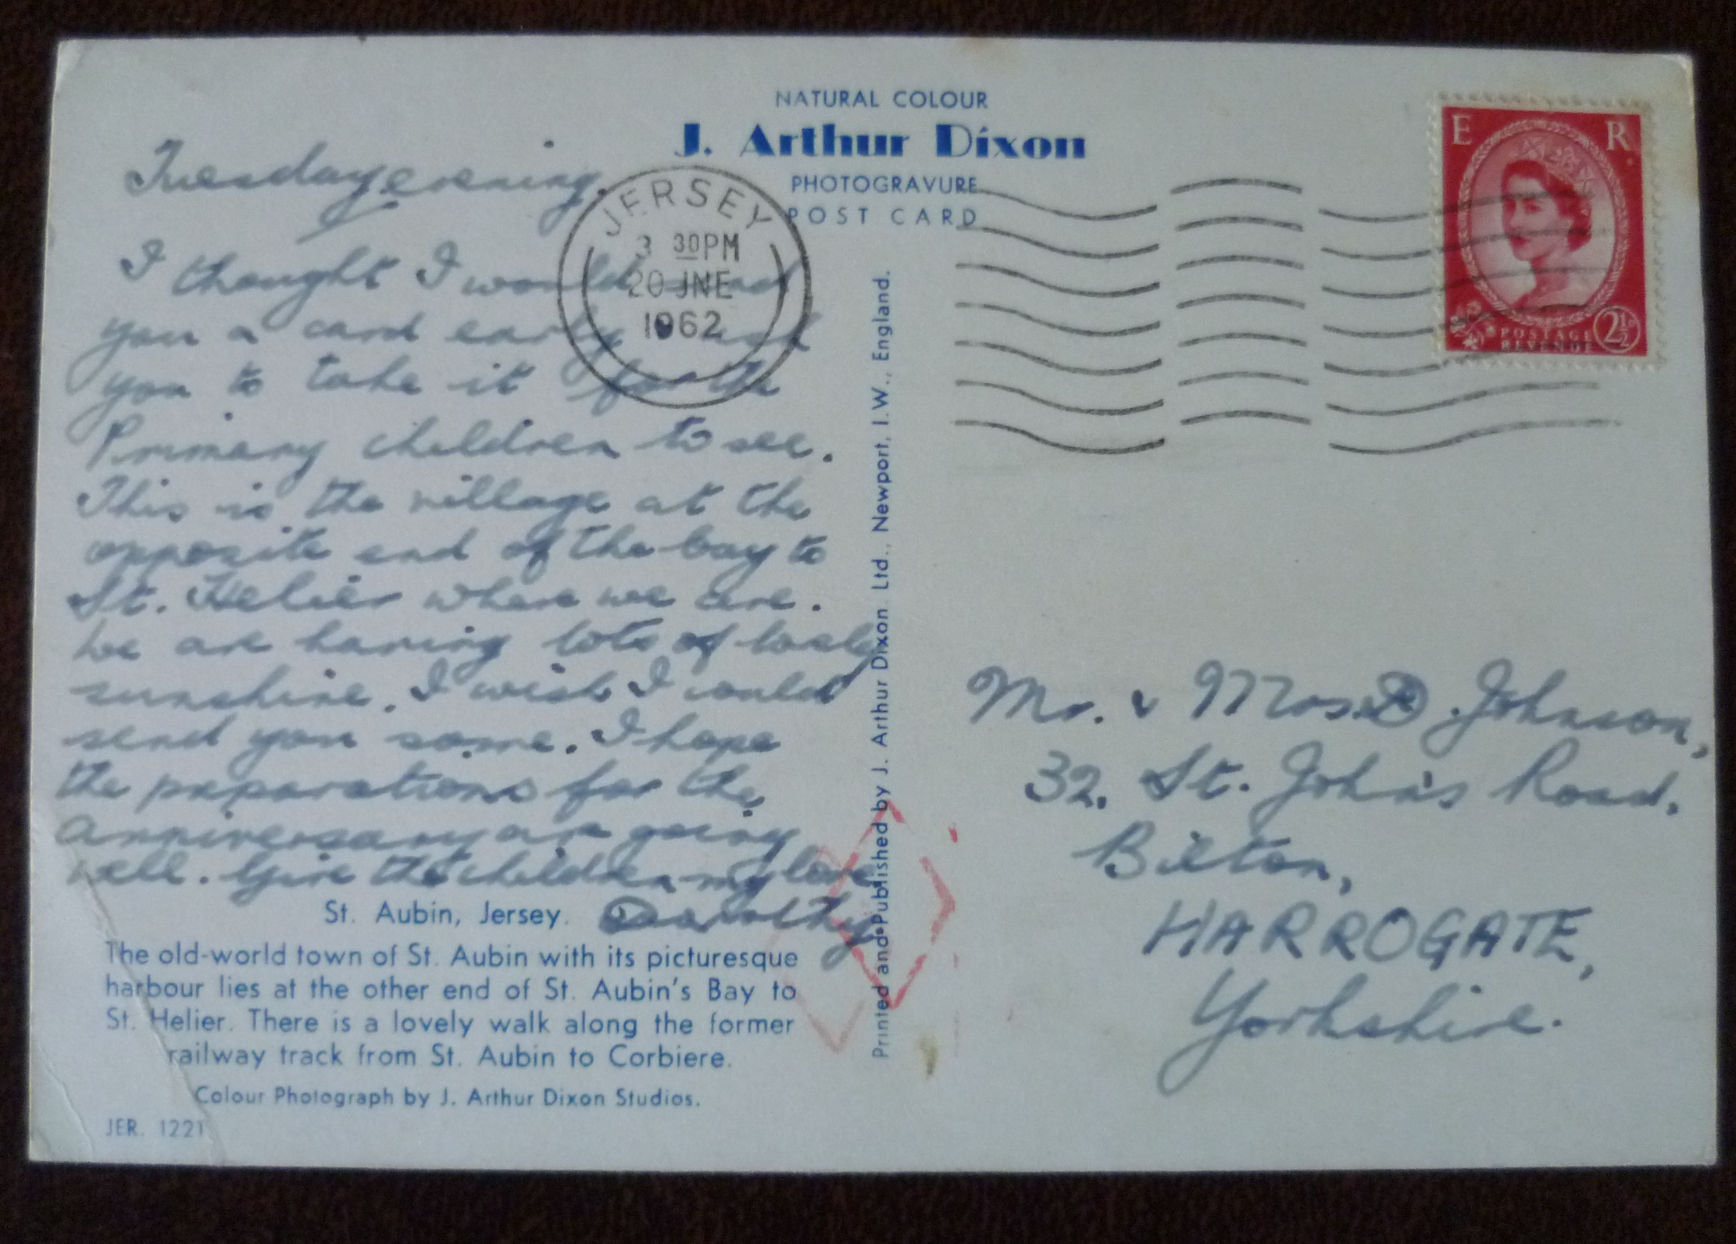 NATURAL COLOUR
J. Arthur Dixon
PHOTOGRAVURE
POST CARD
Tuesday evening.
I thought I would send
you a card early and ask
you to take it for the
Primary children to see.
This is the village at the
opposite end of the bay to
St. Helier where we are.
We are having lots of lovely
sunshine. I wish I could
send you some. I hope
the preparations for the
anniversary are going
well. Give the children my love
Dorothy
St. Aubin, Jersey.
The old-world town of St. Aubin with its picturesque
harbour lies at the other end of St. Aubin's Bay to
St. Helier. There is a lovely walk along the former
railway track from St. Aubin to Corbiere.
Colour Photograph by J. Arthur Dixon Studios.
JER. 1221
Printed and Published by J. Arthur Dixon Ltd., Newport, I.W., England.
JERSEY
3 30PM
20 JNE
1962
E R
POSTAGE
REVENUE
2½D
Mr. & Mrs. Johnson,
32, St. John's Road,
Bilton,
HARROGATE,
Yorkshire.